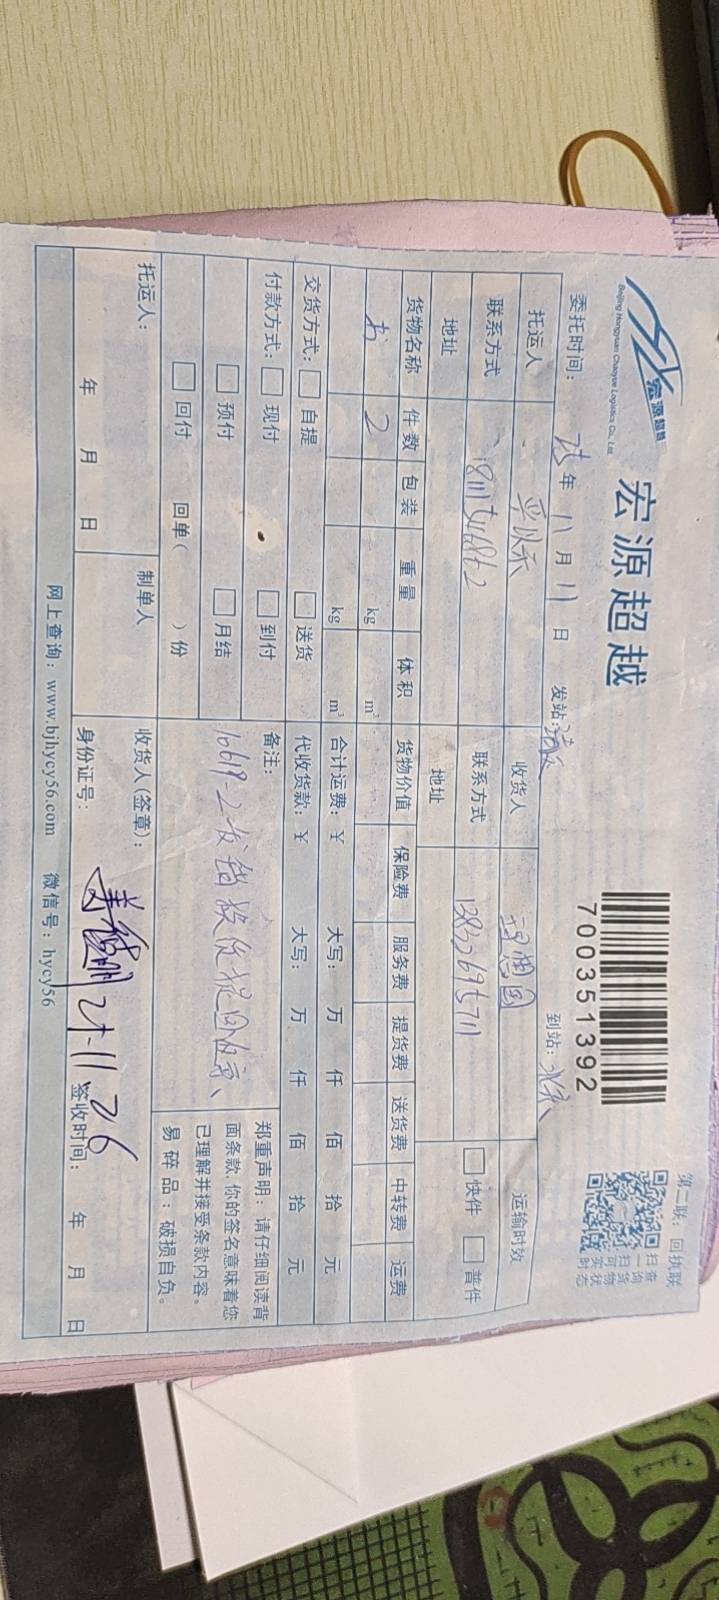 宏源超越
Beijing Hongyuan Chaoyue Logistics Co., Ltd.
宏源超越
700351392
第二联：回执联
扫一扫
查询货物实时状态
委托时间： 25年 11月 11日 发站： 到站：北京
托运人 收货人 理想国 运输时效
联系方式 联系方式 13832695711 快件 普件
地址 地址
货物名称 件数 包装 重量 体积 货物价值 保险费 服务费 提货费 送货费 中转费 运费
书 2 kg m³
kg m³ 合计运费：¥ 大写： 万 仟 佰 拾 元
交货方式： 自提 送货 代收货款：¥ 大写： 万 仟 佰 拾 元
付款方式： 现付 到付 备注：
预付 月结 10619-2
回付 回单( )份
郑重声明：请仔细阅读背
面条款，你的签名意味着您
已理解并接受条款内容。
易碎品：破损自负。
托运人： 制单人 收货人(签章)：
年 月 日 身份证号： 25-11.26 签收时间： 年 月 日
网上查询：www.bjhycy56.com 微信号：hycy56